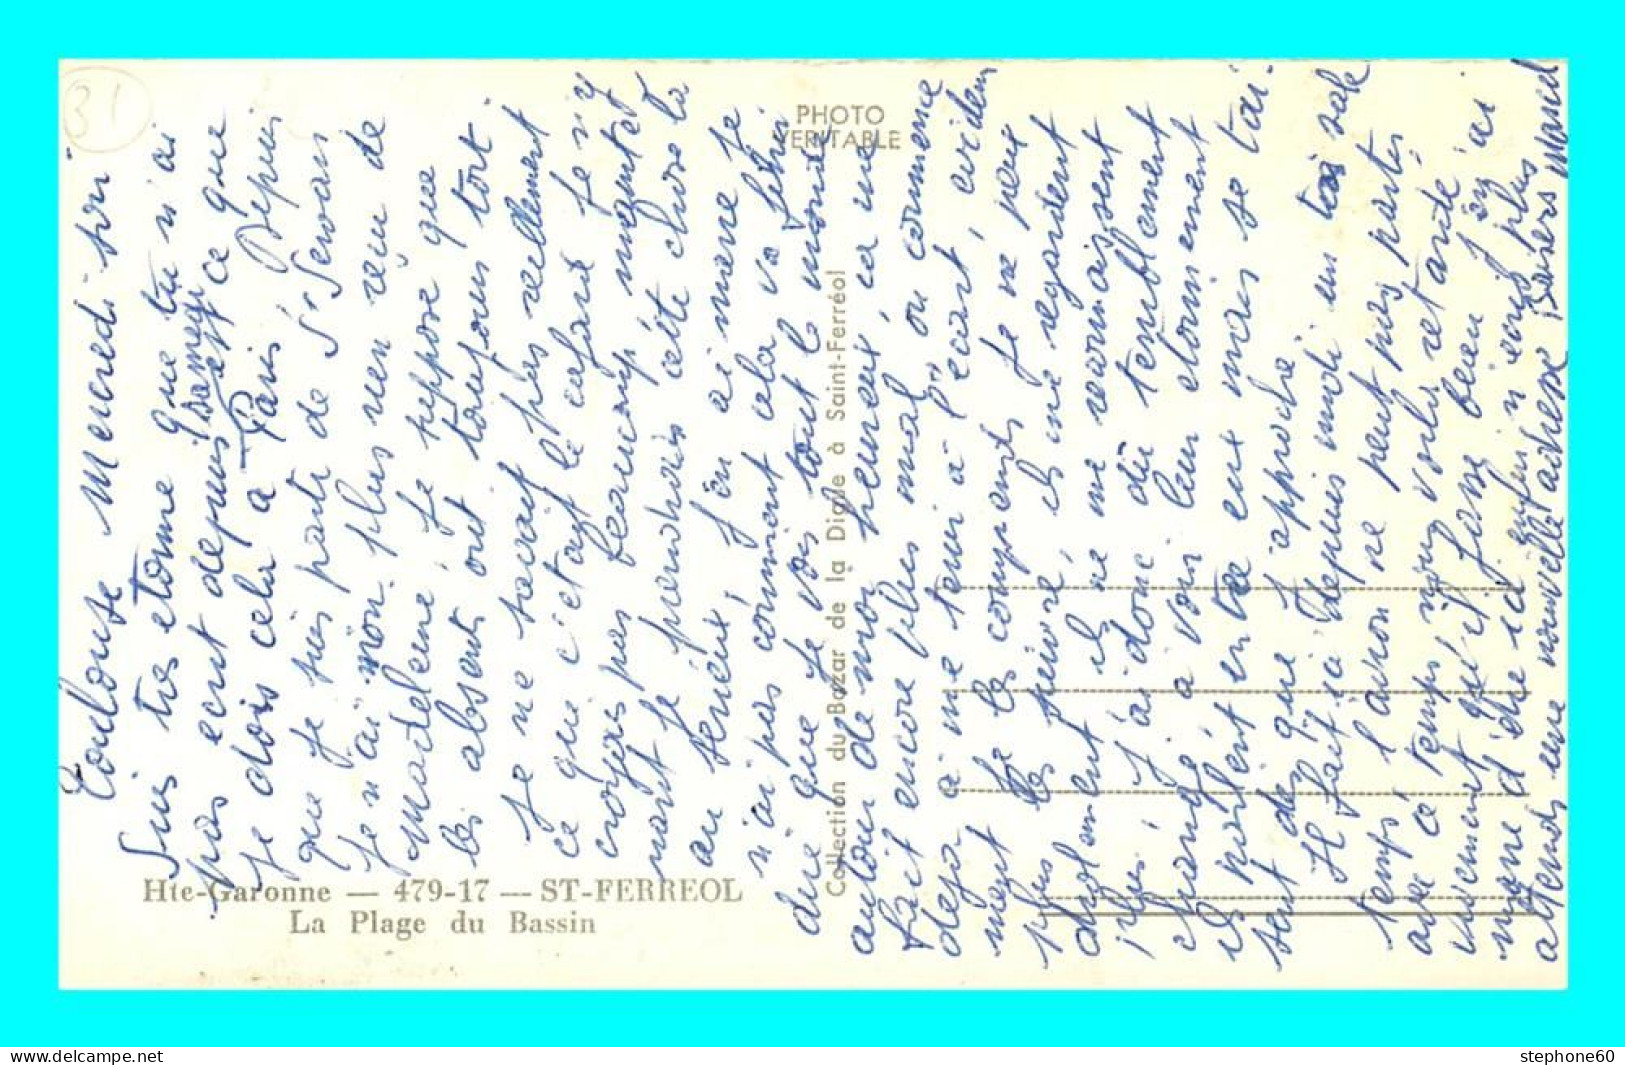 31
PHOTO
VERITABLE
Toulouse Mercredi soir
Suis tres étonné que tu n'ai
pas ecrit depuis samedi, est ce que
je dois cela à Paris. Depuis
que je suis parti de St Servan
je n'ai non plus rien reçu de
Madeleine, je suppose que
les absents ont toujours tort.
Je ne savait pas reellement
ce que c'etait le cafard je n'y
croyais pas beaucoup, maintenant
je prendrais cette chose la
au serieux, j'en ai marre je
n'ai pas comment cela va finir
dire que je vois tout le monde
autour de moi heureux, ca me
fait encore plus mal, on commence
deja à me tenir à l'ecart, evidem
ment je les comprends je ne peux
plus les suivre, ils me regardent
drolement ils ne me reconnaissent
plus, j'ai donc dû terriblement
changé à voir leur etonnement
ils parlent entre eux mais se tai-
sent des que j'approche.
Il fait ici depuis midi un sale
temps l'avion ne peut pas partir
avec ce temps, nous voila retardé
vivement qu'il fasse beau j'en ai
marre d'être ici enfin n'ecris plus
attends une nouvelle adresse Baisers Marcel
Collection du Bazar de la Digue à Saint-Ferréol
Hte-Garonne — 479-17 — ST-FERREOL
La Plage du Bassin
www.delcampe.net
stephone60